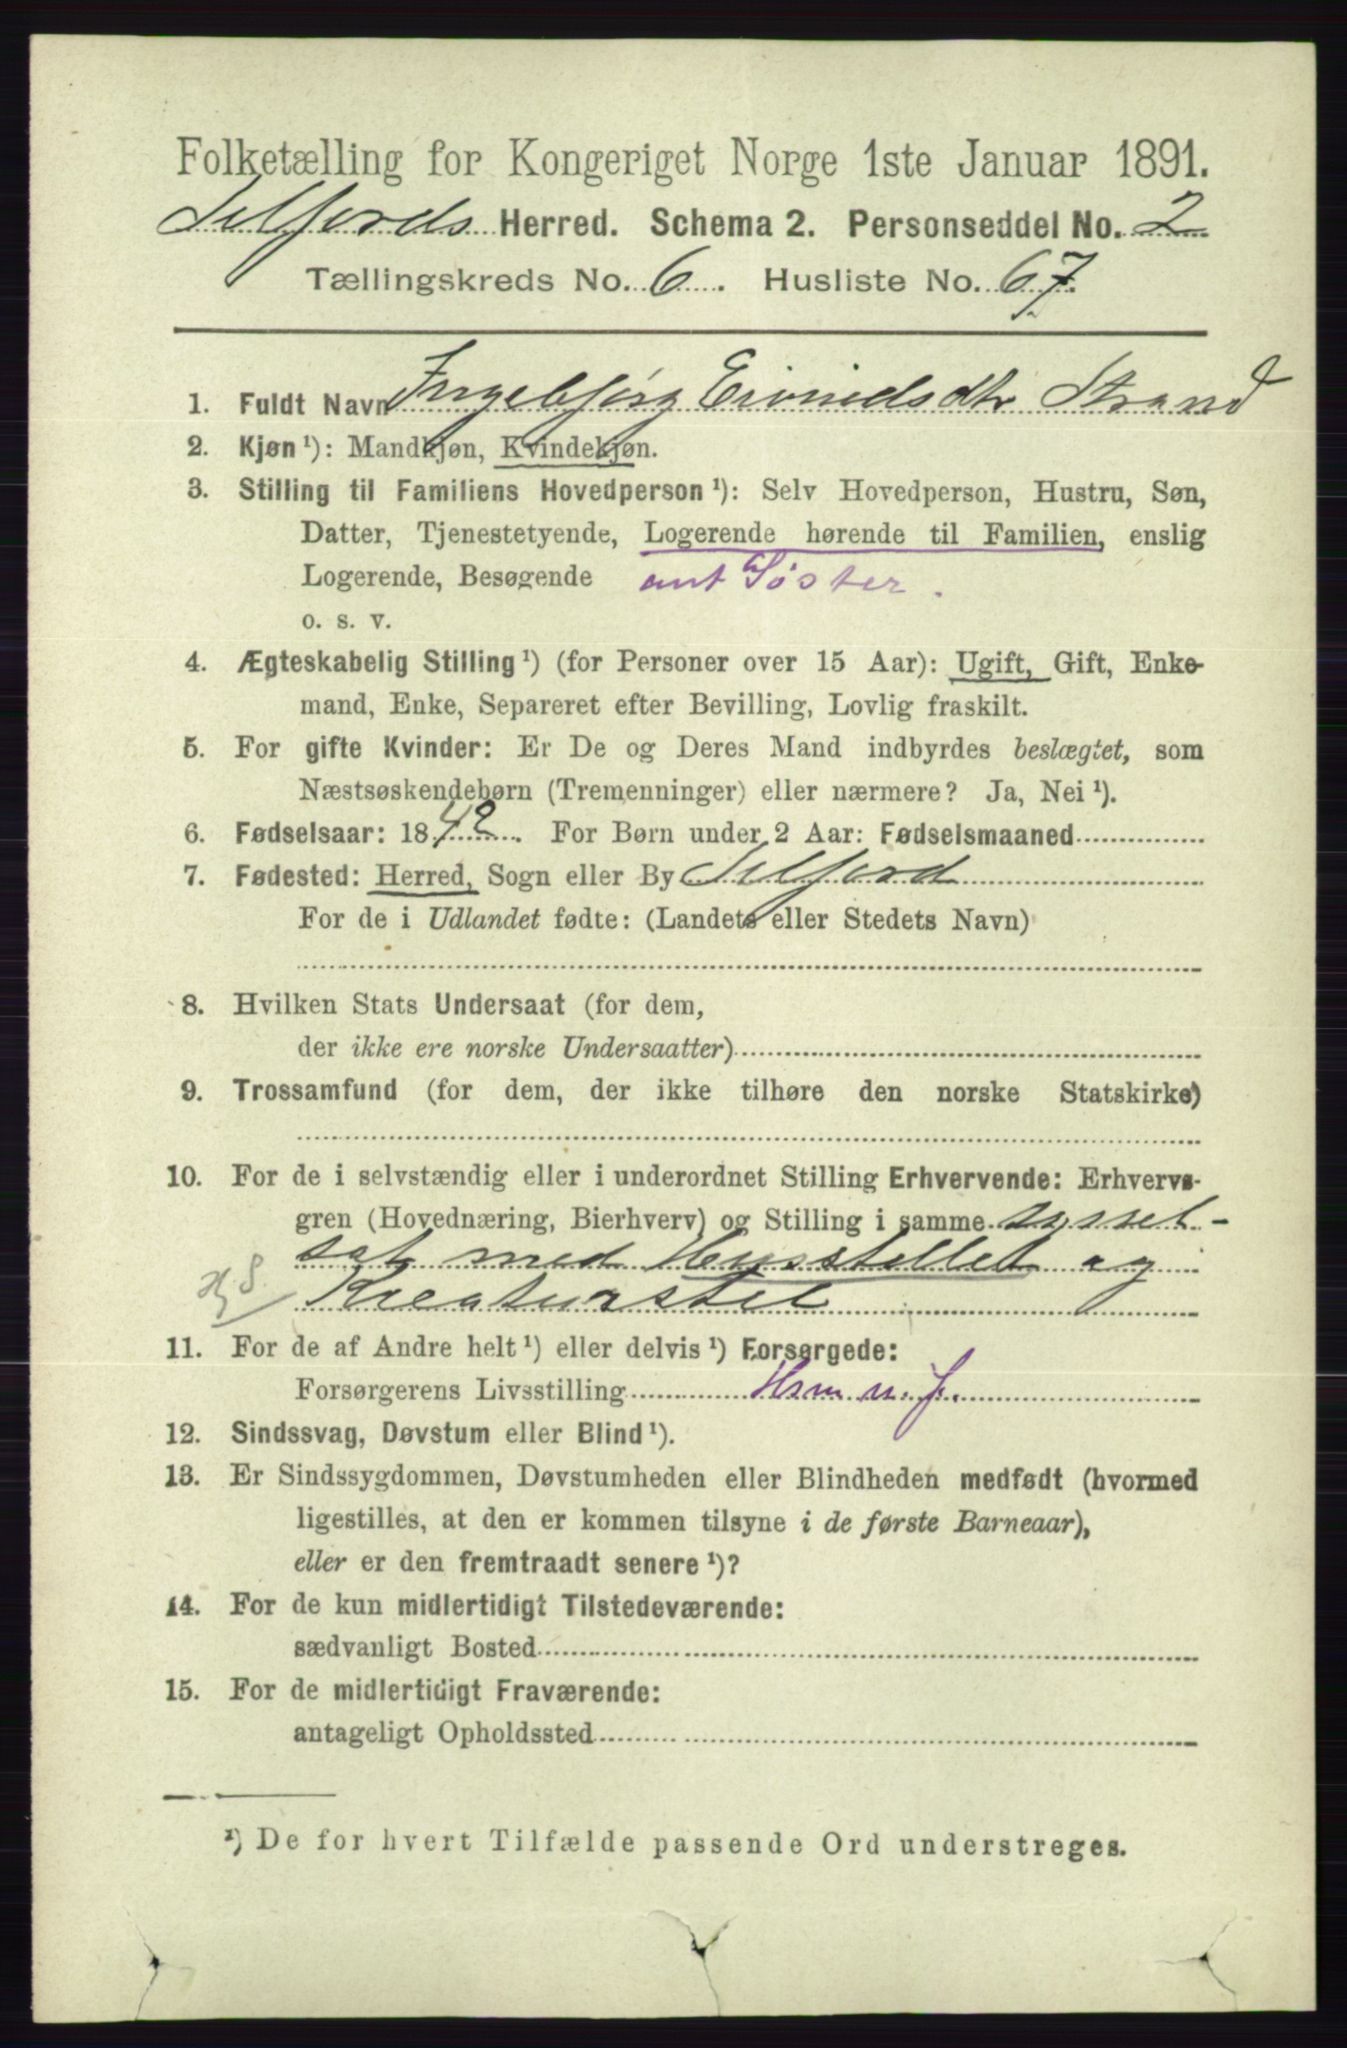 Folketælling for Kongeriget Norge 1ste Januar 1891.
Silfjords Herred. Schema 2. Personseddel No. 2
Tællingskreds No. 6. Husliste No. 67.
1. Fuldt Navn Ingebjörg Eivindsdtr Strand
2. Kjøn ¹): Mandkjøn, Kvindekjøn.
3. Stilling til Familiens Hovedperson ¹): Selv Hovedperson, Hustru, Søn,
Datter, Tjenestetyende, Logerende hørende til Familien, enslig
Logerende, Besøgende ant Søster.
o. s. v.
4. Ægteskabelig Stilling ¹) (for Personer over 15 Aar): Ugift, Gift, Enke-
mand, Enke, Separeret efter Bevilling, Lovlig fraskilt.
5. For gifte Kvinder: Er De og Deres Mand indbyrdes beslægtet, som
Næstsøskendebørn (Tremenninger) eller nærmere? Ja, Nei ¹).
6. Fødselsaar: 1842. For Børn under 2 Aar: Fødselsmaaned
7. Fødested: Herred, Sogn eller By Silfjord
For de i Udlandet fødte: (Landets eller Stedets Navn)
8. Hvilken Stats Undersaat (for dem,
der ikke ere norske Undersaatter)
9. Trossamfund (for dem, der ikke tilhøre den norske Statskirke)
10. For de i selvstændig eller i underordnet Stilling Erhvervende: Erhvervs-
gren (Hovednæring, Bierhverv) og Stilling i samme syssel-
sat med Husstellet og
Kreaturstel
11. For de af Andre helt ¹) eller delvis ¹) Forsørgede:
Forsørgerens Livsstilling Hsm m. J.
12. Sindssvag, Døvstum eller Blind ¹).
13. Er Sindssygdommen, Døvstumheden eller Blindheden medfødt (hvormed
ligestilles, at den er kommen tilsyne i de første Barneaar),
eller er den fremtraadt senere ¹)?
14. For de kun midlertidigt Tilstedeværende:
sædvanligt Bosted
15. For de midlertidigt Fraværende:
antageligt Opholdssted
¹) De for hvert Tilfælde passende Ord understreges.